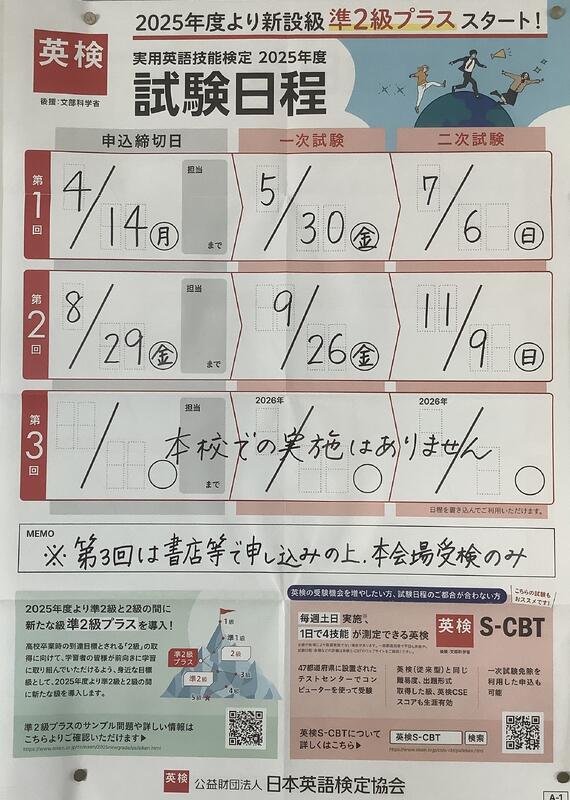 2025年度より新設級 準2級プラス スタート!
英検
後援:文部科学省
実用英語技能検定 2025年度
試験日程
申込締切日 一次試験 二次試験
第1回
担当
4/14 月 まで
5/30 金
7/6 日
第2回
担当
8/29 金 まで
9/26 金
11/9 日
第3回
担当
まで
2026年
2026年
本校での実施はありません
日程を書き込んでご利用いただけます。
MEMO
※ 第3回は書店等で申し込みの上、本会場受検のみ
2025年度より準2級と2級の間に
新たな級 準2級プラスを導入!
高校卒業時の到達目標とされる「2級」の取
得に向けて、学習者の皆様が前向きに学習
に取り組んでいただけるよう、身近な目標
級として、2025年度より準2級と2級の間
に新たな級を導入します。
1級
準1級
2級
準2級プラス
準2級
3級
4級
5級
準2級プラスのサンプル問題や詳しい情報は
こちらよりご確認いただけます▶
英検の受験機会を増やしたい方、試験日程のご都合が合わない方
こちらの試験も
おススメです!
毎週土日 実施、
1日で4技能 が測定できる英検
英検 S-CBT
後援:文部科学省
47都道府県に設置された
テストセンターでコン
ピューターを使って受験
英検(従来型)と同じ
難易度、出題形式
取得した級、英検CSE
スコアも生涯有効
一次試験免除を
利用した申込も
可能
英検S-CBTについて
詳しくはこちら▶
英検S-CBT 検索
英検 公益財団法人 日本英語検定協会
A-1